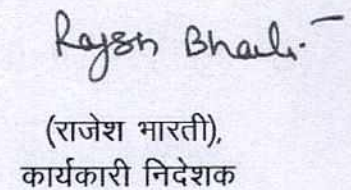 Rajesh Bharti
(राजेश भारती),
कार्यकारी निदेशक